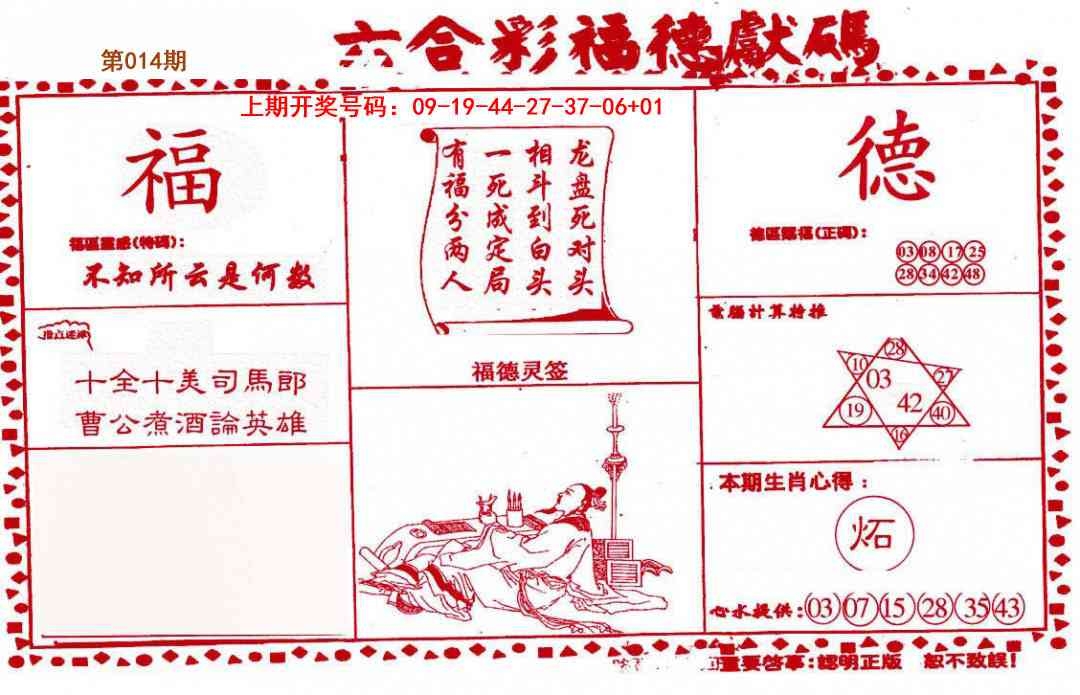 六合彩福德獻碼
第014期
上期开奖号码：09-19-44-27-37-06+01
福
福區靈感(特碼)：
不知所云是何数
十全十美司馬郎
曹公煮酒論英雄
龙盘死对头
相斗到白头
一死成定局
有福分两人
福德灵签
德
德區賜福(正碼)：
03 08 17 25
28 34 42 48
電腦計算特推
28
10 03 27
19 42 40
16
本期生肖心得：
炻
心水提供：03 07 15 28 35 43
重要啓事：認明正版 恕不致誤！